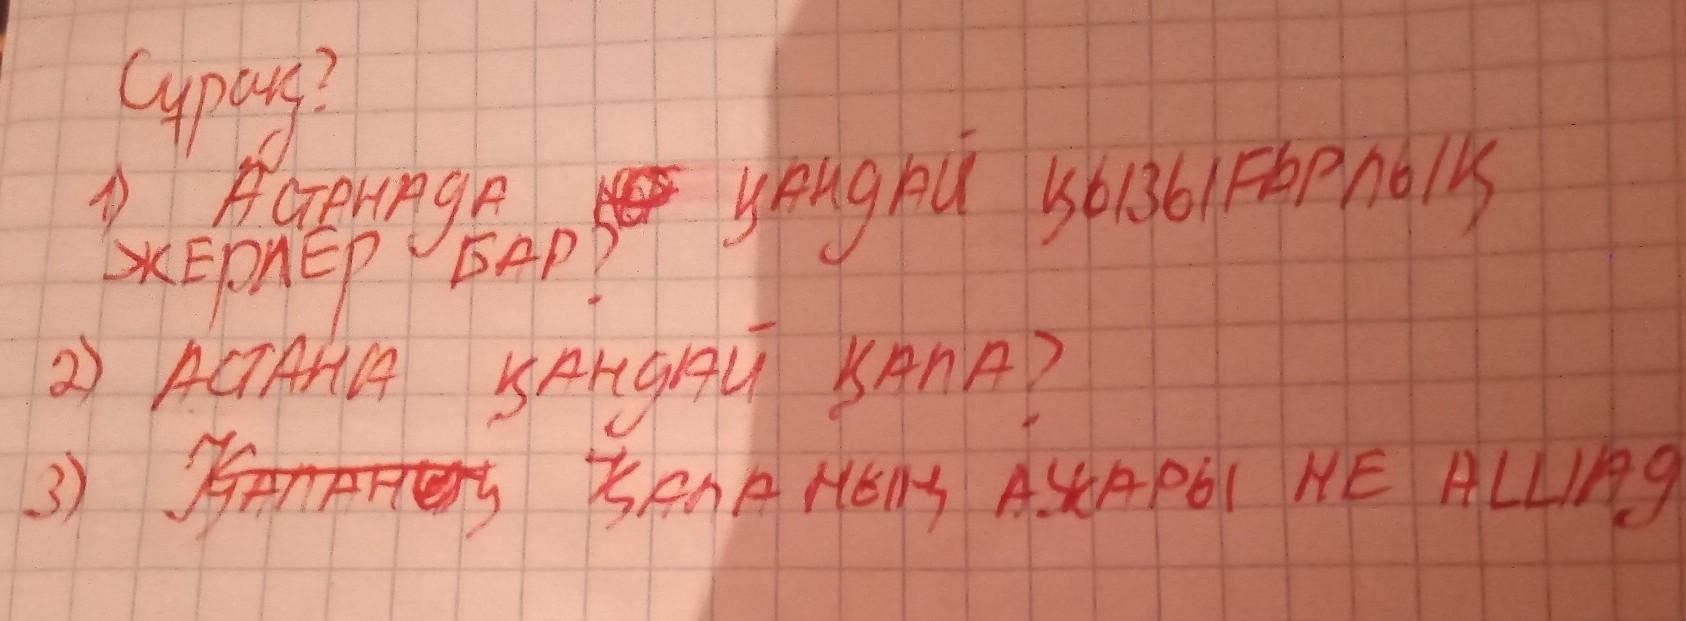 Сұрақ?
1) Астанада қандай қызығырлық
жерлер бар?
2) Астана қандай қала?
3) Қаланың ажары не ашад